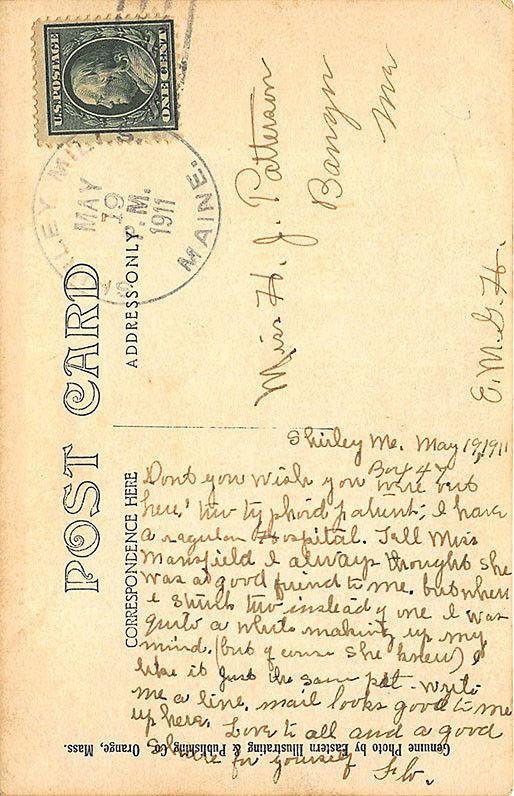 U.S. POSTAGE
ONE CENT
MAY
19
P.M.
1911
MAINE.
POST CARD
ADDRESS ONLY
Miss H. J. Patterson
Bangor
Me
E. M. G. H.
CORRESPONDENCE HERE
Shirley Me. May 19, 1911
Box 47
Dont you wish you were out
here, two typhoid patients, I have
a regular Hospital. Tell Miss
Mansfield I always thought she
was a good friend to me. but when
I struck two instead of one I was
quite a while making up my
mind. (but of course she knew) I
like it just the same Write
me a line. mail looks good to me
up here. Love to all and a good
share for yourself
Genuine Photo by Eastern Illustrating & Publishing Co. Orange, Mass.